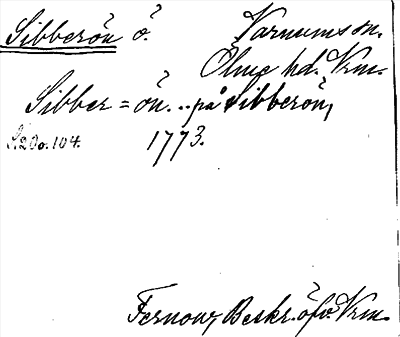 Sibberön ö. Varnums sn.
Ölme hd. Vrm.
Sibber=ön. .. på Sibberön,
S. 200. 104. 1773.
Fernow, Beskr. öfv. Vrm.